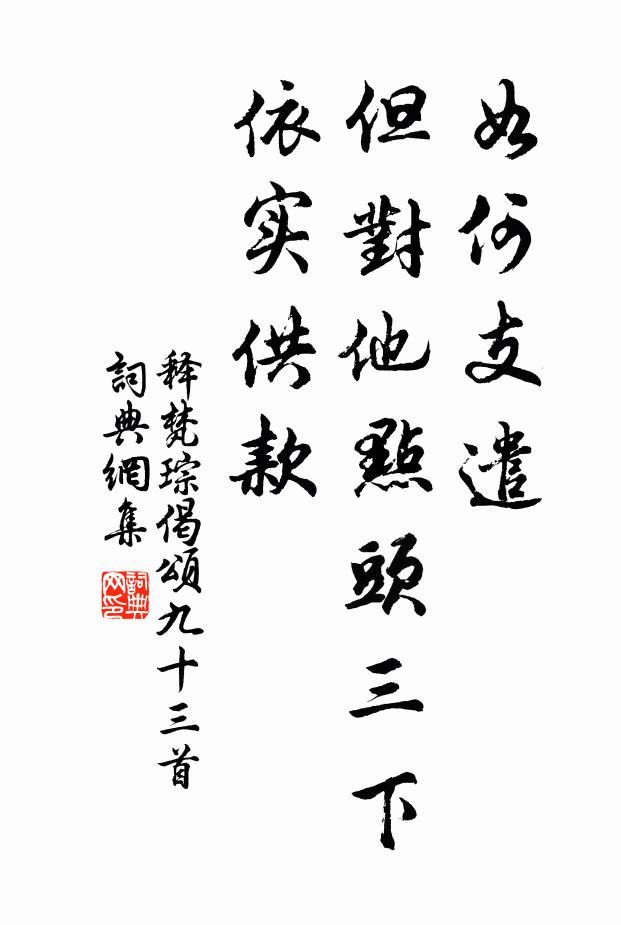 如何支遣
但對他點頭三下
依实供款
释梵琮偈頌九十三首
詞典網集
詞典网印